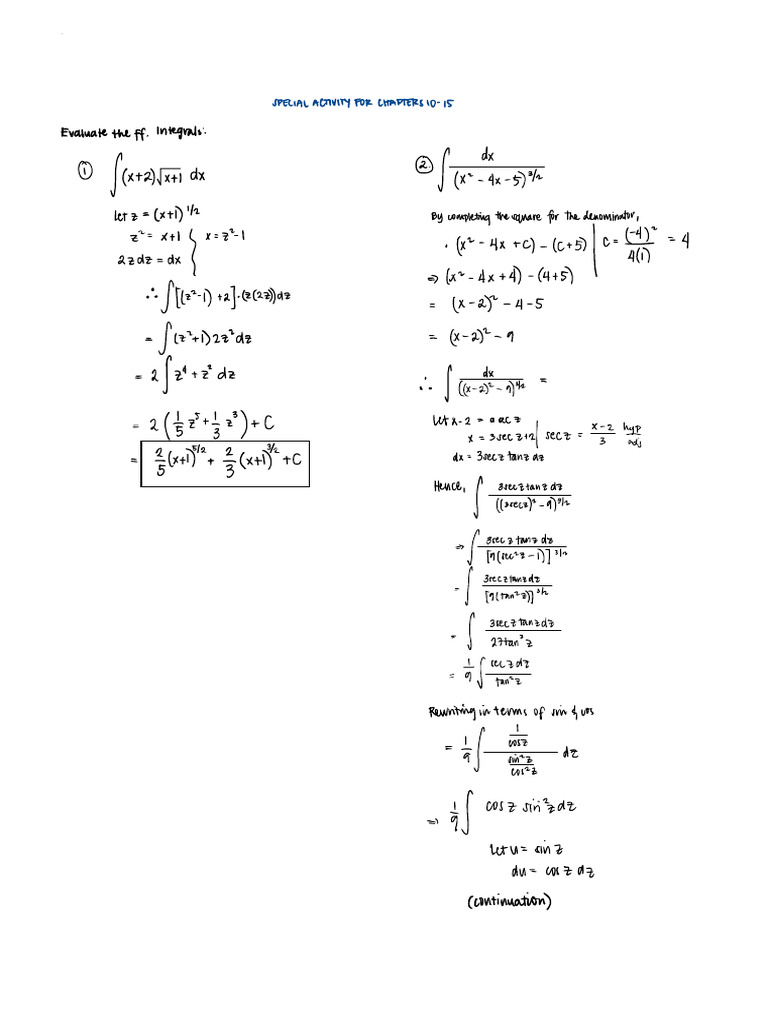 SPECIAL ACTIVITY FOR CHAPTERS 10-15
Evaluate the ff. Integrals:
① ∫(x+2)√x+1 dx
let z = (x+1)^1/2
z² = x+1 } x = z²-1
2zdz = dx
∴ ∫[(z²-1)+2]·(z(2z))dz
= ∫(z²+1)2z²dz
= 2∫z⁴+z²dz
= 2(1/5 z⁵+1/3 z³)+C
= 2/5(x+1)^5/2 + 2/3(x+1)^3/2 +C
②. ∫ dx/(x² - 4x - 5)^3/2
By completing the square for the denominator,
· (x² - 4x + C) - (C+5) | C = (-4)²/4(1) = 4
⇒ (x² - 4x + 4) - (4+5)
= (x-2)² - 4 - 5
= (x-2)² - 9
∴ ∫ dx/((x-2)² - 9)^3/2 =
Let x-2 = a sec z
x = 3sec z+2 | sec z = x-2/3 hyp/adj
dx = 3sec z tan z dz
Hence, ∫ 3sec z tan z dz/((3sec z)² - 9)^3/2
⇒ ∫ 3sec z tan z dz/[9(sec²z - 1)]^3/2
= ∫ 3sec z tan z dz/[9(tan²z)]^3/2
= ∫ 3sec z tan z dz/27tan³z
= 1/9 ∫ sec z dz/tan²z
Rewriting in terms of sin & cos
= 1/9 ∫ (1/cosz)/(sin²z/cos²z) dz
⇒ 1/9 ∫ cos z sin⁻²z dz
Let u = sin z
du = cos z dz
(continuation)